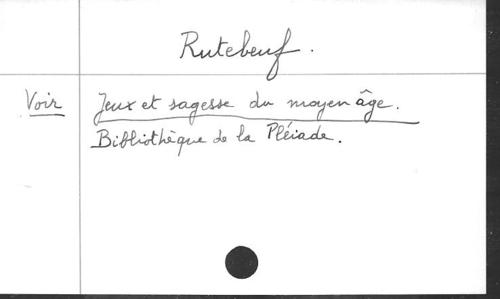 Rutebeuf.
Voir Jeux et sagesse du moyen âge.
Bibliothèque de la Pléiade.